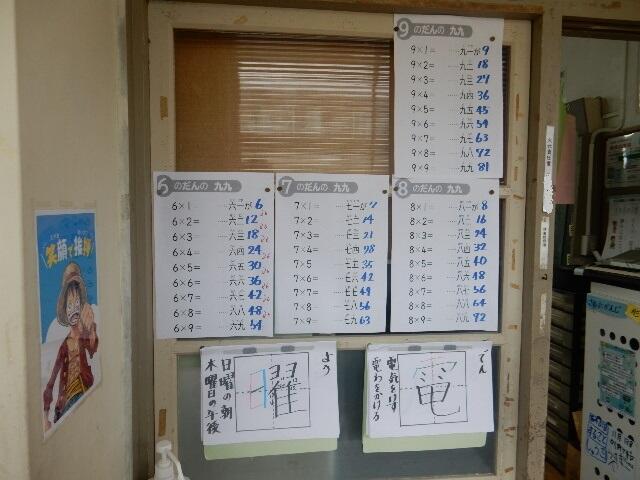 9 のだんの 九九
9×1= ……九一が 9
9×2= ……九二 18
9×3= ……九三 27
9×4= ……九四 36
9×5= ……九五 45
9×6= ……九六 54
9×7= ……九七 63
9×8= ……九八 72
9×9= ……九九 81
6 のだんの 九九
6×1= ……六一が 6
6×2= ……六二 12
6×3= ……六三 18
6×4= ……六四 24
6×5= ……六五 30
6×6= ……六六 36
6×7= ……六七 42
6×8= ……六八 48
6×9= ……六九 54
7 のだんの 九九
7×1= ……七一が 7
7×2= ……七二 14
7×3= ……七三 21
7×4= ……七四 28
7×5= ……七五 35
7×6= ……七六 42
7×7= ……七七 49
7×8= ……七八 56
7×9= ……七九 63
8 のだんの 九九
8×1= ……八一が 8
8×2= ……八二 16
8×3= ……八三 24
8×4= ……八四 32
8×5= ……八五 40
8×6= ……八六 48
8×7= ……八七 56
8×8= ……八八 64
8×9= ……八九 72
笑顔で挨拶
よう
曜
日曜の朝
木曜日の午後
でん
電
電気をけす
電わをかける